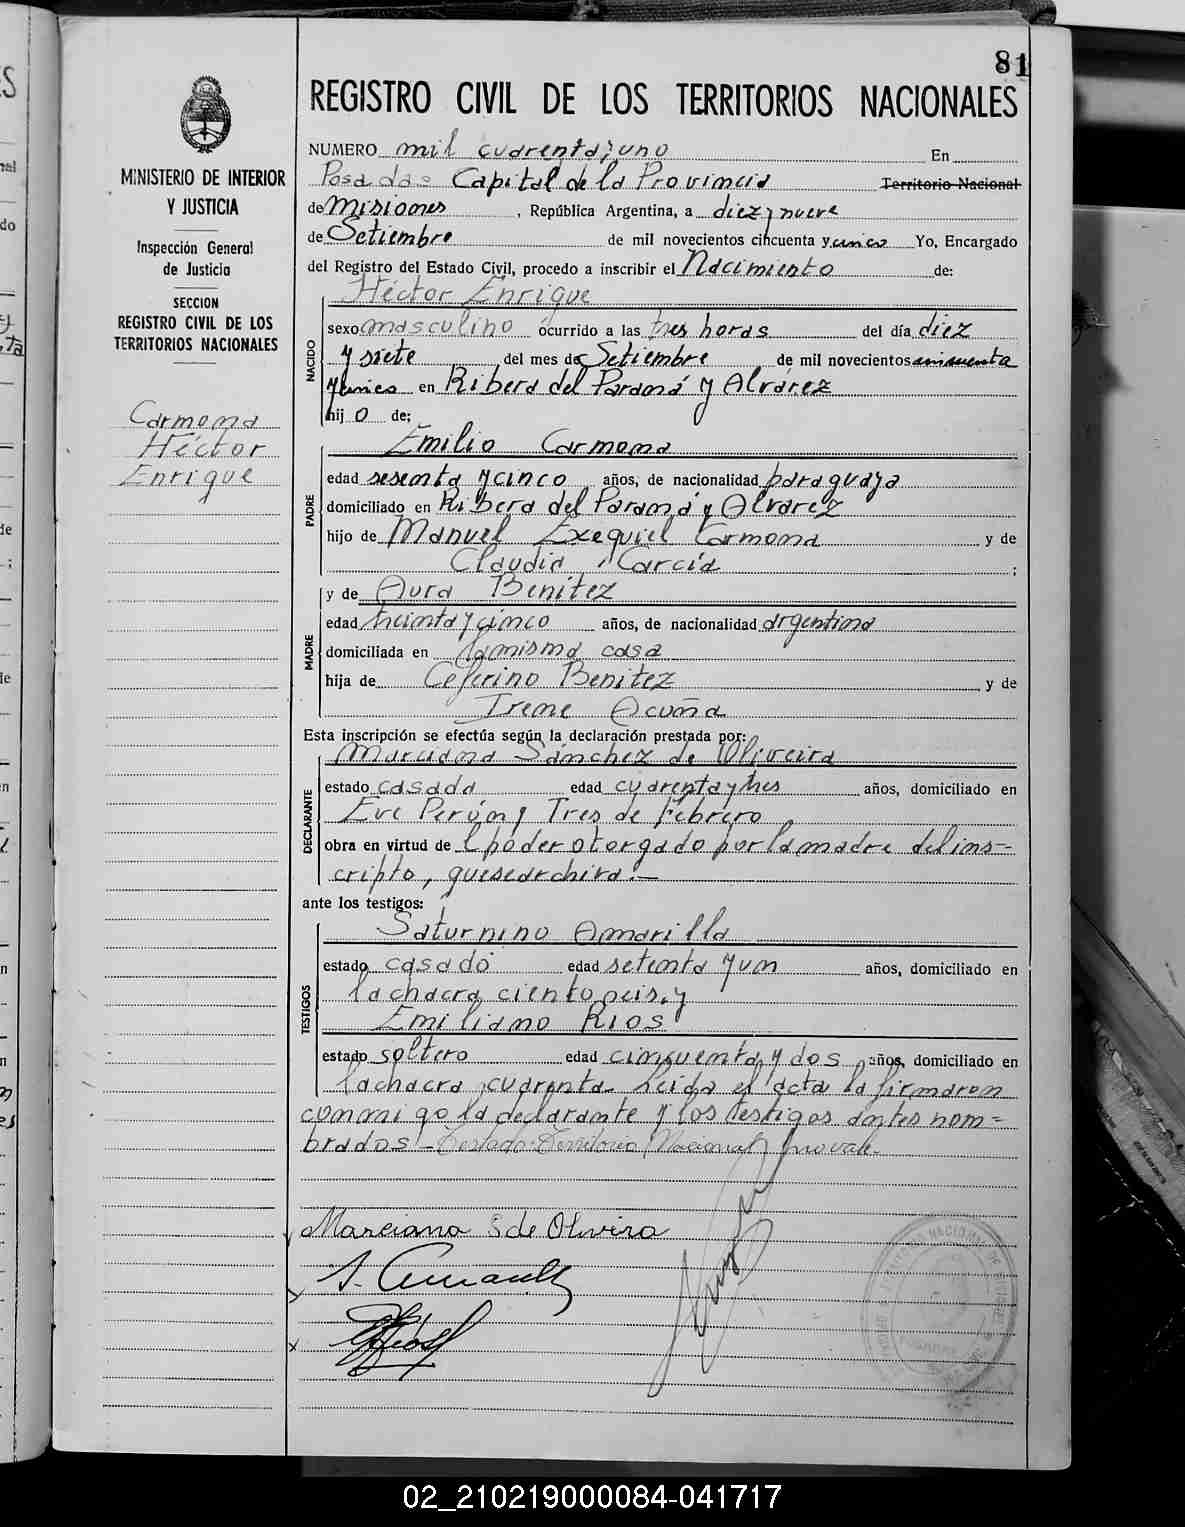 81
REGISTRO CIVIL DE LOS TERRITORIOS NACIONALES
MINISTERIO DE INTERIOR
Y JUSTICIA
Inspección General
de Justicia
SECCION
REGISTRO CIVIL DE LOS
TERRITORIOS NACIONALES
Carmona
Héctor
Enrique
NUMERO mil cuarenta y uno En
Posadas Capital de la Provincia Territorio Nacional
de Misiones, República Argentina, a diez y nueve
de Setiembre de mil novecientos cincuenta y cinco Yo, Encargado
del Registro del Estado Civil, procedo a inscribir el Nacimiento de:
Héctor Enrique
NACIDO
sexo masculino ocurrido a las tres horas del día diez
y siete del mes de Setiembre de mil novecientos cincuenta
y cinco en Ribera del Paraná y Alvarez
hij o de;
Emilio Carmona
PADRE
edad sesenta y cinco años, de nacionalidad paraguaya
domiciliado en Ribera del Paraná y Alvarez
hijo de Manuel Exequiel Carmona y de
Claudia García ;
y de Aura Benítez
MADRE
edad treinta y cinco años, de nacionalidad argentina
domiciliada en la misma casa
hija de Ceferino Benitez y de
Irene Acuña
Esta inscripción se efectúa según la declaración prestada por:
Marciana Sánchez de Oliveira
DECLARANTE
estado casada edad cuarenta y tres años, domiciliado en
Eva Perón y Tres de Febrero
obra en virtud de l poder otorgado por la madre del ins-
cripto, que se archiva.—
ante los testigos:
Saturnino Amarilla
TESTIGOS
estado casado edad setenta y un años, domiciliado en
la chacra ciento seis, y
Emiliano Rios
estado soltero edad cincuenta y dos años, domiciliado en
la chacra cuarenta. Leida el acta la firmaron
conmigo la declarante y los testigos antes nom=
brados - Testado: Territorio Nacional, no vale.
Marciana S de Olivira
02_210219000084-041717